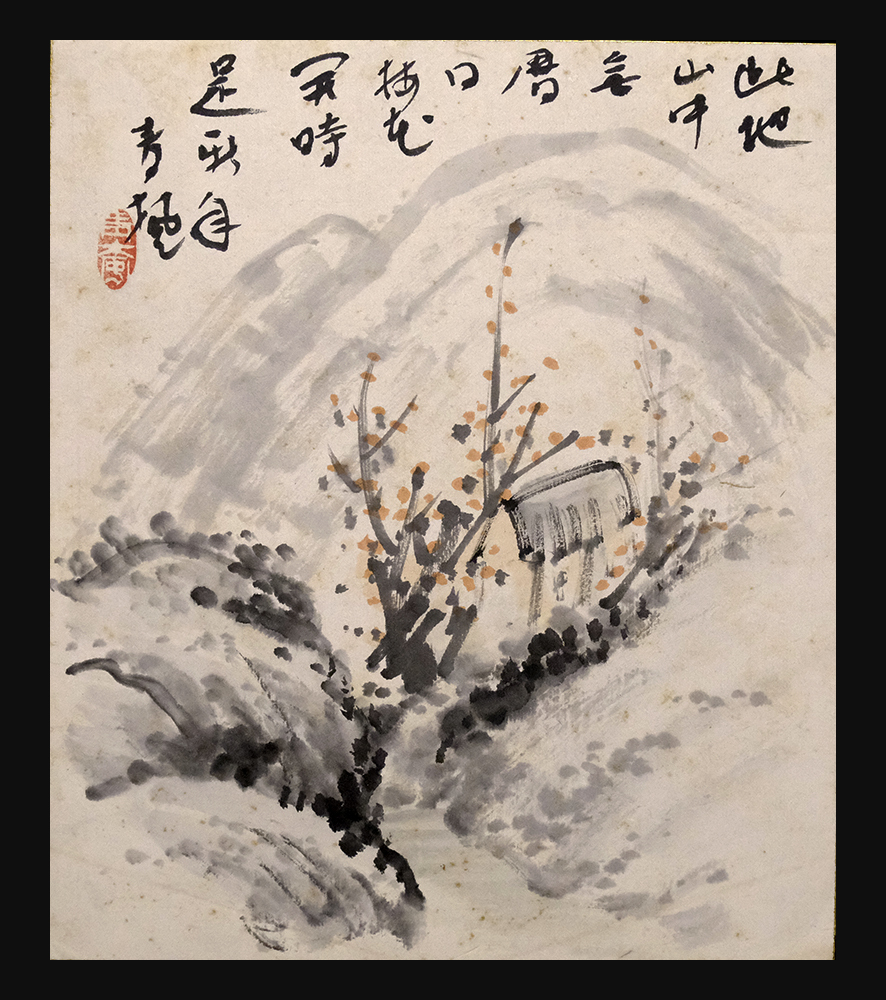 此地
山中
無
曆
日
梅花
開時
是新年
青楓